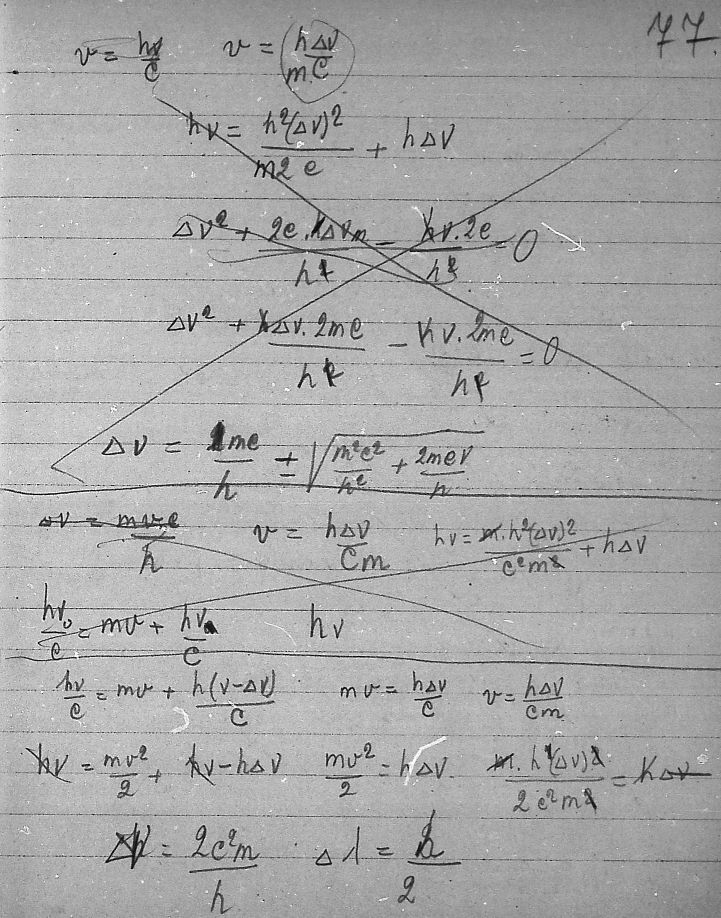 77.
v = hν/c   v = hΔν/m.c
hν = h²(Δν)²/m2c + hΔν
Δν² + 2c.hΔνm/h² − hν.2c/h² = 0
Δν² + hΔν.2mc/h² − hν.2mc/h² = 0
Δν = mc/h ± √(m²c²/h² + 2mcν/h)
Δν = mv.c/h   v = hΔν/cm   hν = m.h²(Δν)²/c²m² + hΔν
hν₀/c = mv + hν/c   hν
hν/c = mv + h(ν−Δν)/c   mv = hΔν/c   v = hΔν/cm
hν = mv²/2 + hν − hΔν   mv²/2 = hΔν   m.h²(Δν)²/2c²m² = hΔν
Δν = 2c²m/h   Δλ = h/2